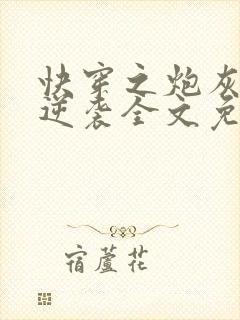 快穿之炮灰
逆袭全文免
宿蘆花